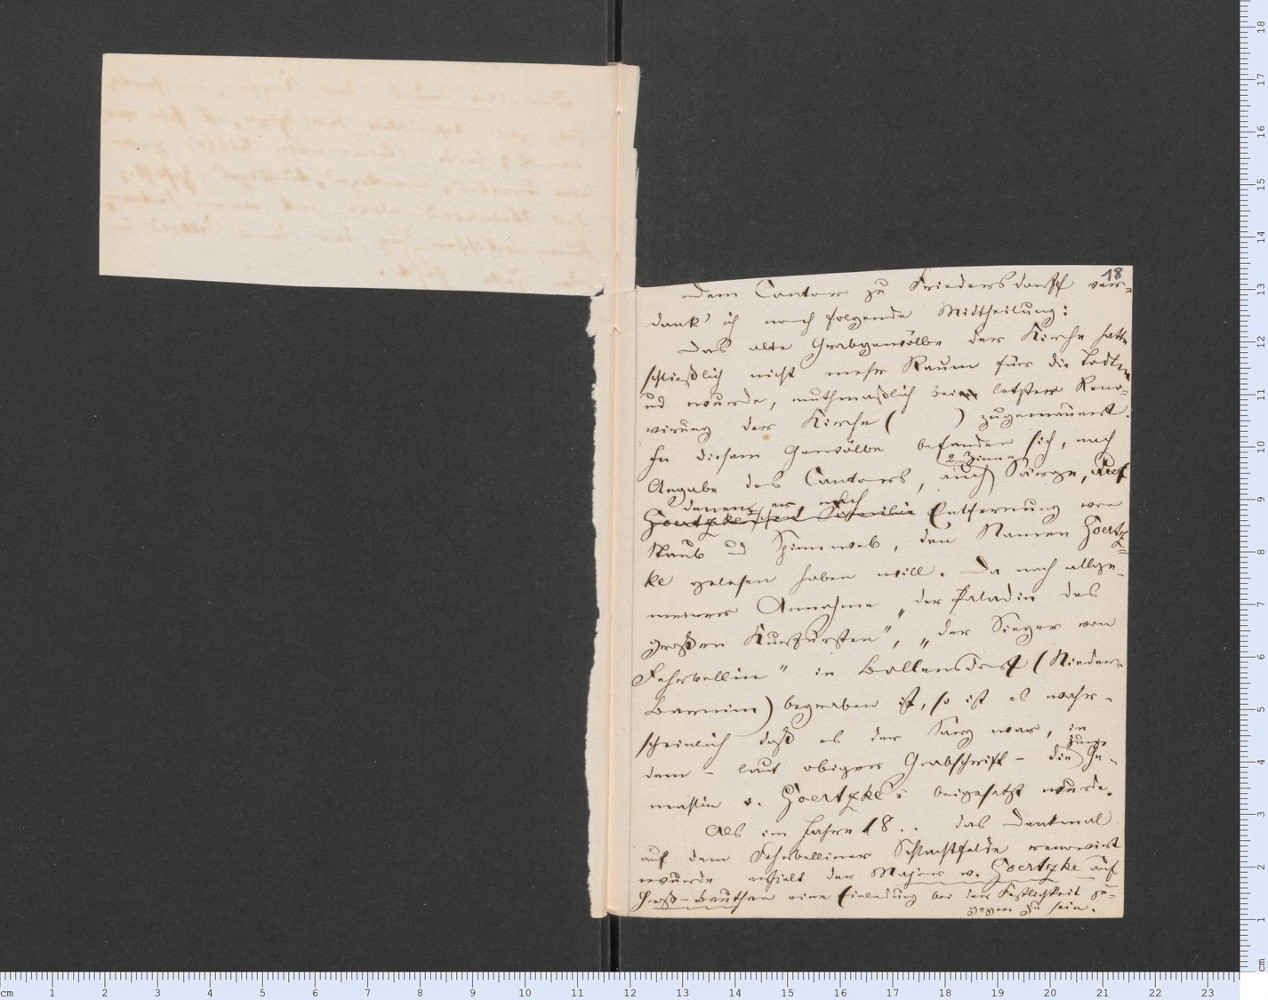 18
Dem Cantor zu Friedersdorff ver-
dank' ich noch folgende Mittheilung:
Das alte Grabgewölbe der Kirche hatte
schließlich nicht mehr Raum für die Todten
und wurde, muthmaßlich bei letzter Reno-
virung der Kirche (          ) zugemauert.
In diesem Gewölbe befanden sich, nach
2 Zinn
Angabe des Cantors, auch Särge, auf
denen er nach
Goertzke'schen Familie Entfernung von
Staub und Spinnweb, den Namen Goertz-
ke gelesen haben will. Da nach allge-
meiner Annahme „der Paladin des
großen Kurfürsten", „der Sieger von
Fehrbellin" in Bollensdorf (Nieder-
Barnim) begraben ist, so ist es wahr-
scheinlich daß es der Sarg war, in
dem – laut obiger Grabschrift – die Ge-
mahlin v. Goertzke's beigesetzt wurde.
Als im Jahre 18 . . das Denkmal
auf dem Fehrbelliner Schlachtfelde renovirt
wurde erhielt der Major v. Goertzke auf
Groß-Beuthen eine Einladung bei der Festlichkeit zu-
gegen zu sein.